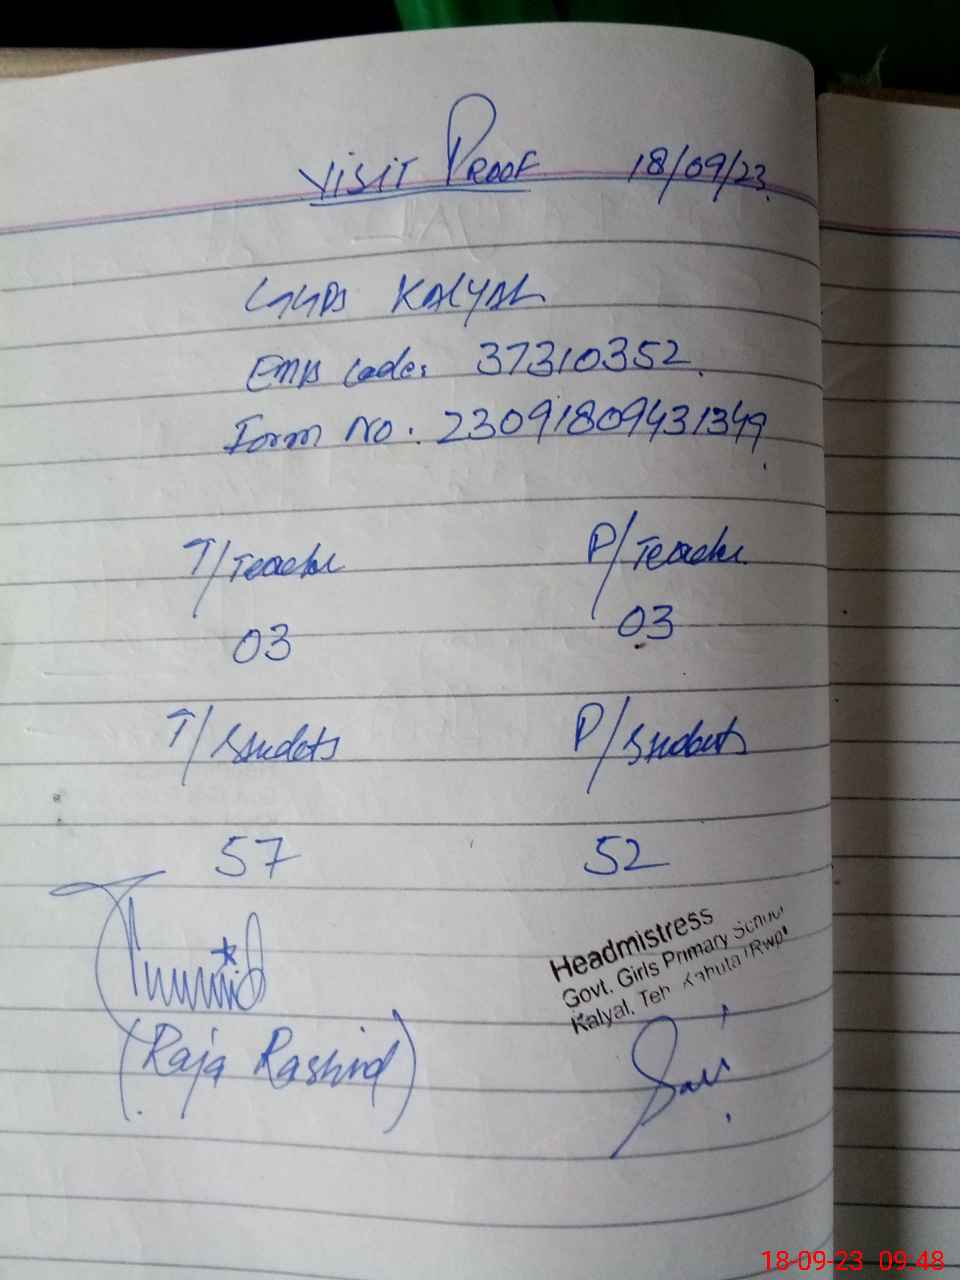 VISIT PROOF 18/09/23
GGPS KALYAL
EMIS Code: 37310352.
Form No. 23091809431349.
T/Teacher P/Teacher
03 03
T/Students P/Students
57 52
Headmistress
Govt. Girls Primary School
Kalyal. Teh Kahuta (Rwp)
(Raja Rashid)
18-09-23 09:48